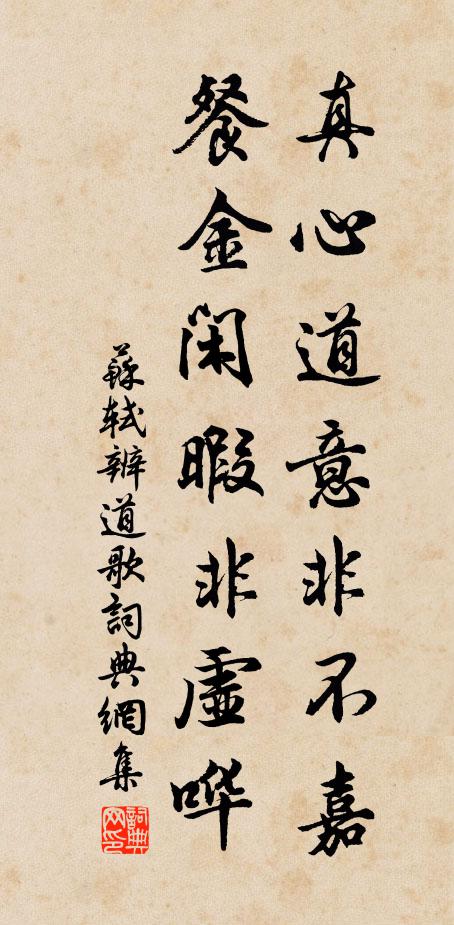 真心道意非不嘉
餐金闲暇非虚哗
蘇軾辨道歌詞典網集
詞典网印